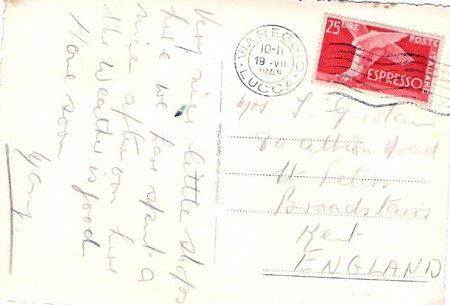 Very nice little shops
here we have spent a
nice afternoon here
the weather is good
Home soon
VIAREGGIO
10-11
19 · VII
1949
LUCCA
25 LIRE
POSTE
ITALIANE
ESPRESSO
Mrs
90 Albion Road
St Peters
Broadstairs
Kent
ENGLAND